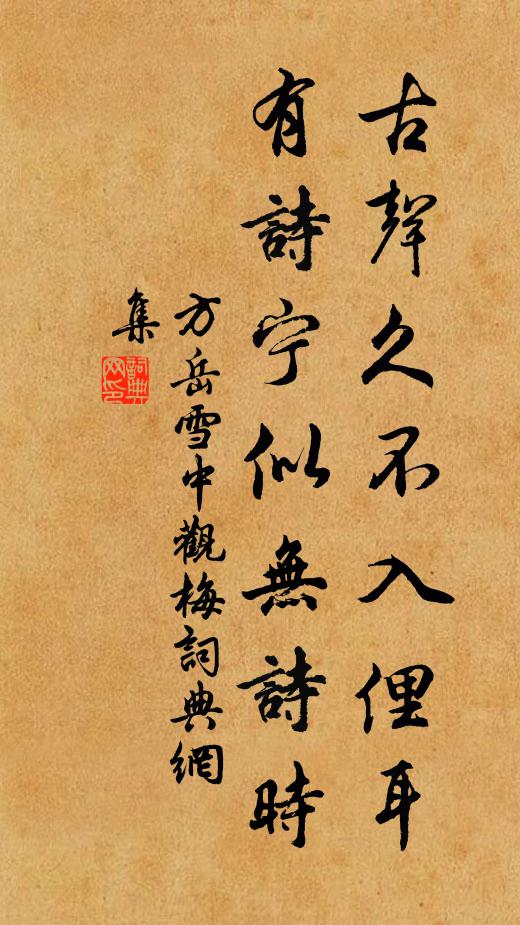 古聲久不入俚耳
有詩宁似無詩時
方岳雪中觀梅詞典網
集
詞典网印